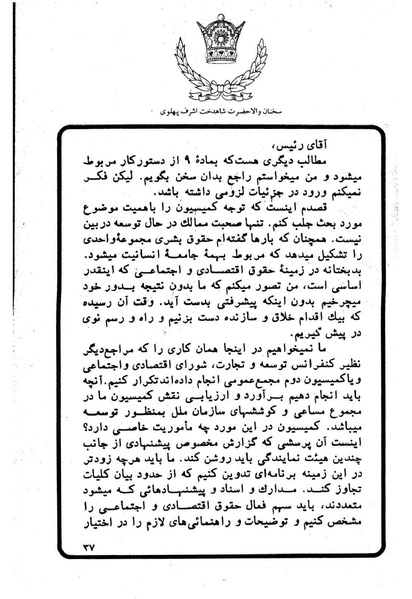 سخنان والاحضرت شاهدخت اشرف پهلوی
آقای رئیس،
مطالب دیگری هست‌که بمادهٔ ۹ از دستورکار مربوط
میشود و من میخواستم راجع بدان سخن بگویم. لیکن فکر
نمیکنم ورود در جزئیات لزومی داشته باشد.
قصدم اینست که توجه کمیسیون را باهمیت موضوع
مورد بحث جلب کنم. تنها صحبت ممالک در حال توسعه دربین
نیست. همچنان که بارها گفته‌ام حقوق بشری مجموعهٔ واحدی
را تشکیل میدهد که مربوط بهمهٔ جامعهٔ انسانیت میشود.
بدبختانه در زمینهٔ حقوق اقتصادی و اجتماعی که اینقدر
اساسی است، من تصور میکنم که ما بدون نتیجه بدور خود
میچرخیم بدون اینکه پیشرفتی بدست آید. وقت آن رسیده
که بیك اقدام خلاق و سازنده دست بزنیم و راه و رسم نوی
در پیش گیریم.
ما نمیخواهیم در اینجا همان کاری را که مراجع‌دیگر
نظیر کنفرانس توسعه و تجارت، شورای اقتصادی واجتماعی
ویاکمیسیون دوم مجمع‌عمومی انجام داده‌اندتکرار کنیم.آنچه
باید انجام دهیم برآورد و ارزیابی نقش کمیسیون ما در
مجموع مساعی و کوششهای سازمان ملل بمنظور توسعه
میباشد. کمیسیون در این مورد چه ماموریت خاصی دارد؟
اینست آن پرسشی که گزارش مخصوص پیشنهادی از جانب
چندین هیئت نمایندگی باید روشن کند. ما باید هرچه زودتر
در این زمینه برنامه‌ای تدوین کنیم که از حدود بیان کلیات
تجاوز کند. مدارك و اسناد و پیشنهادهائی که میشود
متعددند، باید سهم فعال حقوق اقتصادی و اجتماعی را
مشخص کنیم و توضیحات و راهنمائی‌های لازم را در اختیار
۳۷